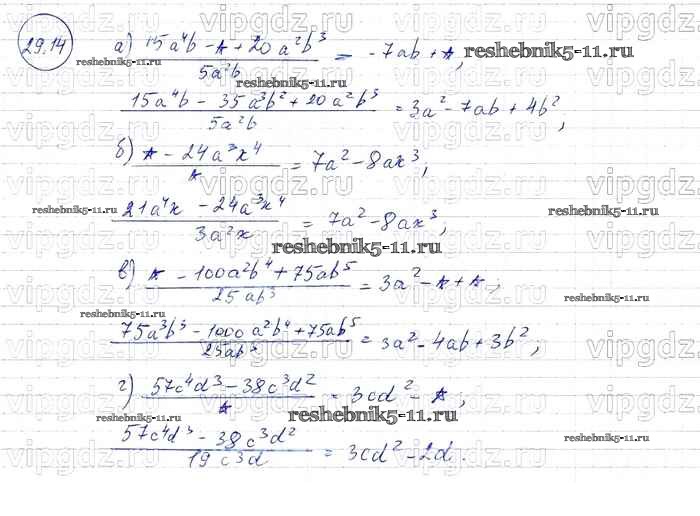 29.14
а) (15a⁴b - * + 20a²b³)/(5a²b) = -7ab + *,
(15a⁴b - 35a³b² + 20a²b³)/(5a²b) = 3a² - 7ab + 4b²,
б) (* - 24a³x⁴)/* = 7a² - 8ax³;
(21a⁴x - 24a³x⁴)/(3a²x) = 7a² - 8ax³,
в) (* - 100a²b⁴ + 75ab⁵)/(25ab³) = 3a² - * + *;
(75a³b³ - 1000a²b⁴ + 75ab⁵)/(25ab³) = 3a² - 4ab + 3b²;
г) (57c⁴d³ - 38c³d²)/* = 3cd² - *,
(57c⁴d³ - 38c³d²)/(19c³d) = 3cd² - 2d.
vipgdz.ru
reshebnik5-11.ru